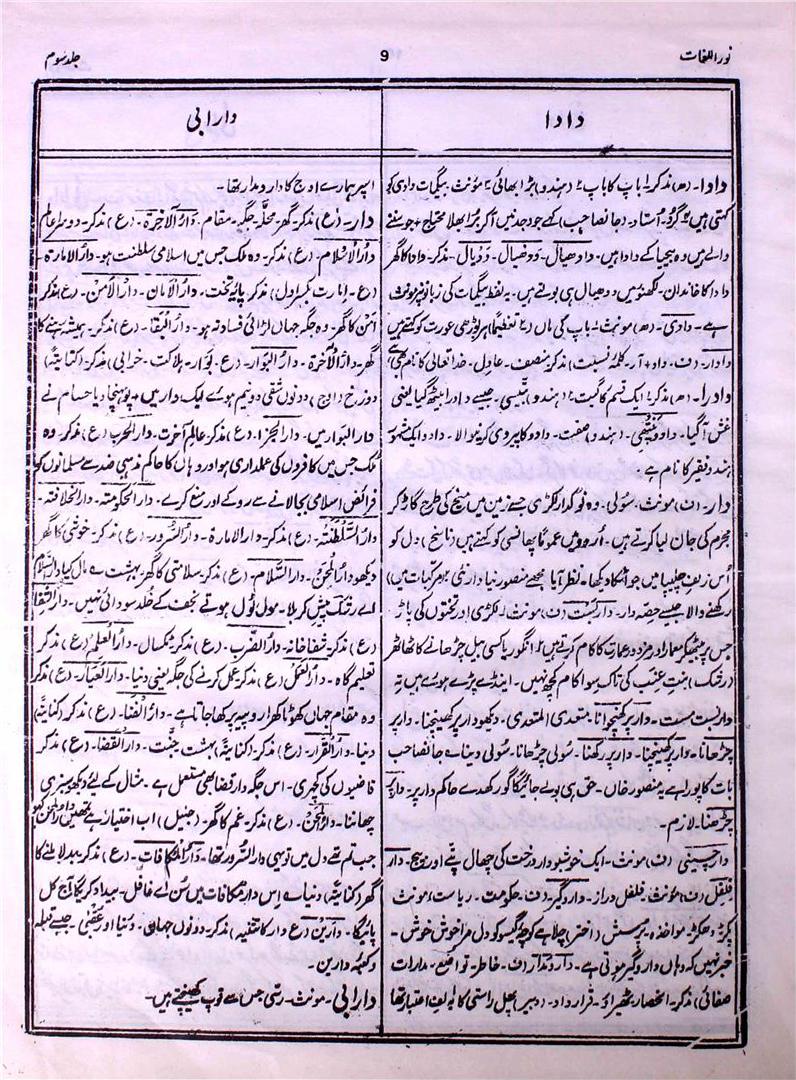 نور اللغات
9
جلد سوم
دادا
دارابی
دادا۔ (ھ) مذکر ۱۔ باپ کا باپ ۲۔ (ہندو) بڑا بھائی ۳۔ مؤنث۔ بیگمات دادی کو
کہتی ہیں
والے ہیں وہ بیچا کے دادا ہیں۔ دادھیال۔ ددھیال۔ ددیال۔ مذکر۔ دادا کا گھر
دادا کا خاندان۔ لکھنؤ میں ددھیال ہی بولتے ہیں۔ یہ لفظ بیگمات کی زبانوں پر مؤنث
ہے۔ دادی۔ (ھ) مونث ۱۔ باپ کی ماں (۲) تعظیماً ہر بوڑھی عورت کو کہتے ہیں
دادار۔ (ف۔ داد + آر۔ کلمۂ نسبت) مذکر۔ منصف۔ عادل۔ خدا تعالیٰ کا نام بھی
دادرا۔ (ھ) مذکر ۱۔ ایک قسم کا گیت ۲۔ (ہندو) جیسے دادرا بیٹھ گیا یعنی
غش آ گیا۔ دادو پنتھی۔ (ہندو) صفت۔ دادو کا پیروی کرنیوالا۔ دادو ایک مشہور
ہندو فقیر کا نام ہے۔
دار۔ (ف) مونث۔ سولی۔ وہ نوکدار لکڑی جسے زمین میں میخ کی طرح گاڑ کر
مجرم کی جان لیا کرتے ہیں۔ اُردو میں عموماً پھانسی کو کہتے ہیں (ناسخ) دل کو
اُس زلفِ چلیپا میں جو اٹکا دیکھا۔ نظر آیا مجھے منصور نیا دار نئی ۲۔ (مرکبات میں)
رکھنے والا جیسے حصہ دار۔ دار بست (ف) مونث۔ لکڑی اور تختوں کی باڑ
جس پر بیٹھکر معمار اور مزدور عمارت کا کام کرتے ہیں ۲۔ انگور یا کسی بیل چڑھانے کا ٹھاٹھر
(رشک) بنتِ عنب کی تاک سوا کام کچھ نہیں۔ اینڈے پڑے ہوئے ہیں تہ
دار بست مست۔ دار پر کھنچوانا۔ متعدی المتعدی۔ دیکھو دار پر کھینچنا۔ دار پر
چڑھانا۔ دار پر کھینچنا۔ دار پر رکھنا۔ سولی چڑھانا۔ سولی دینا۔ جانصاحب
بات کا پورا ہے یہ منصور خاں۔ حق ہی بولے جائیگا گو رکھدے حاکم دار پر۔ دار پر
چڑھنا۔ لازم۔
دارچینی (ف) مونث۔ ایک خوشبودار درخت کی چھال پتے اور بیج۔ دار
فلفل (ف) مؤنث۔ فلفل دراز۔ دارو گیر۔ (ف۔ حکومت۔ ریاست) مونث
پکڑ دھکڑ۔ مواخذہ۔ پرسش (اختر) چلا ہے کوچۂ گیسو کو دل مرا خوش خوش۔
خبر نہیں کہ وہاں دار و گیر ہوتی ہے۔ دار و مدار (ف۔ خاطر۔ تواضع۔ مدارات
صفائی) مذکر۔ انحصار۔ ٹھیراؤ۔ قرارداد۔ (دبیر) پھل راستی کا الف اعتبار تھا
اسپر ہمارے اوج کا دار و مدار تھا۔
دار۔ (ع) مذکر۔ گھر۔ محلہ۔ جگہ۔ مقام۔ دارُ الآخرۃ۔ (ع) مذکر۔ دوسرا عالم
دارُ الاسلام۔ (ع) مذکر۔ وہ ملک جس میں اسلامی سلطنت ہو۔ دارُ الامارۃ۔
(ع۔ اِمارت بکسر اول) مذکر۔ پایۂ تخت۔ دارُ الامان۔ دارُ الامن۔ (ع) مذکر
امن کا گھر۔ وہ جگہ جہاں لڑائی فساد نہ ہو۔ دارُ البقا۔ (ع) مذکر۔ ہمیشہ رہنے کا
گھر۔ دارُ الآخرۃ۔ دارُ البَوار۔ (ع۔ بَوار۔ ہلاکت۔ خرابی) مذکر۔ (کنایتہً)
دوزخ (اوج) دونوں شقی دونیم ہوئے ایک وار میں + پہونچا دیا حسام نے
دار البوار میں۔ دار الجزا۔ (ع) مذکر۔ عالمِ آخرت۔ دار الحرب (ع) مذکر۔ وہ
ملک جس میں کافروں کی عملداری ہو اور وہاں کا حاکم مذہبی ضد سے مسلمانوں کو
فرائض اسلامی بجا لانے سے روکے اور منع کرے۔ دار الحکومتہ۔ دار الخلافتہ۔
دارُ السّلطنتہ۔ (ع) مذکر۔ دار الامارۃ۔ دارُ السّرور۔ (ع) مذکر۔ خوشی کا گھر
دیکھو دارُ المحن۔ دارُ السّلام۔ (ع) مذکر۔ سلامتی کا گھر۔ بہشت دار السلام
اے رشک پیش کربلا۔ مول لوں ہوتے نجف کے خلد سودائی نہیں۔ دارُ الشّفا
(ع) مذکر۔ شفاخانہ۔ دارُ الضّرب۔ (ع) مذکر۔ ٹکسال۔ دارُ العلم (ع) مذکر
تعلیم گاہ۔ دارُ العمل (ع) مذکر۔ عمل کرنے کی جگہ یعنی دنیا۔ دارُ العیار۔ (ع) مذکر
وہ مقام جہاں کھوٹا کھرا روپیہ پرکھا جاتا ہے۔ دارُ الفنا۔ (ع) مذکر۔ (کنایتہً)
دنیا۔ دارُ القرار۔ (ع) مذکر۔ (کنایتہً) بہشت۔ جنت۔ دارُ القضا۔ (ع) مذکر
قاضیوں کی کچہری۔ اس جگہ دار قضا بھی مستعمل ہے۔ مثال کے لئے دیکھو
چھانٹنا۔ دارُ المحن۔ (ع) مذکر۔ غم کا گھر۔ (جلیل) اب اختیار ہے تمھیں دار المحن کہو
جب تم تھے دل میں تو یہی دار السّرور تھا۔ دارُ المکافات۔ (ع) مذکر۔ بدلا ملنے کا
گھر (کنایتہً) دنیا۔ ہے اِس دارِ مکافات میں سُن اے غافل۔ بیداد کریگا آج کل
پائیگا۔ دارین۔ (ع) دار کا تثنیہ) مذکر۔ دونوں جہان۔ دنیا اور عقبیٰ۔ جیسے قبلہ
و کعبۂ دارین۔
دارابی۔ مونث۔ رسّی جس سے توپ کھینچتے ہیں۔